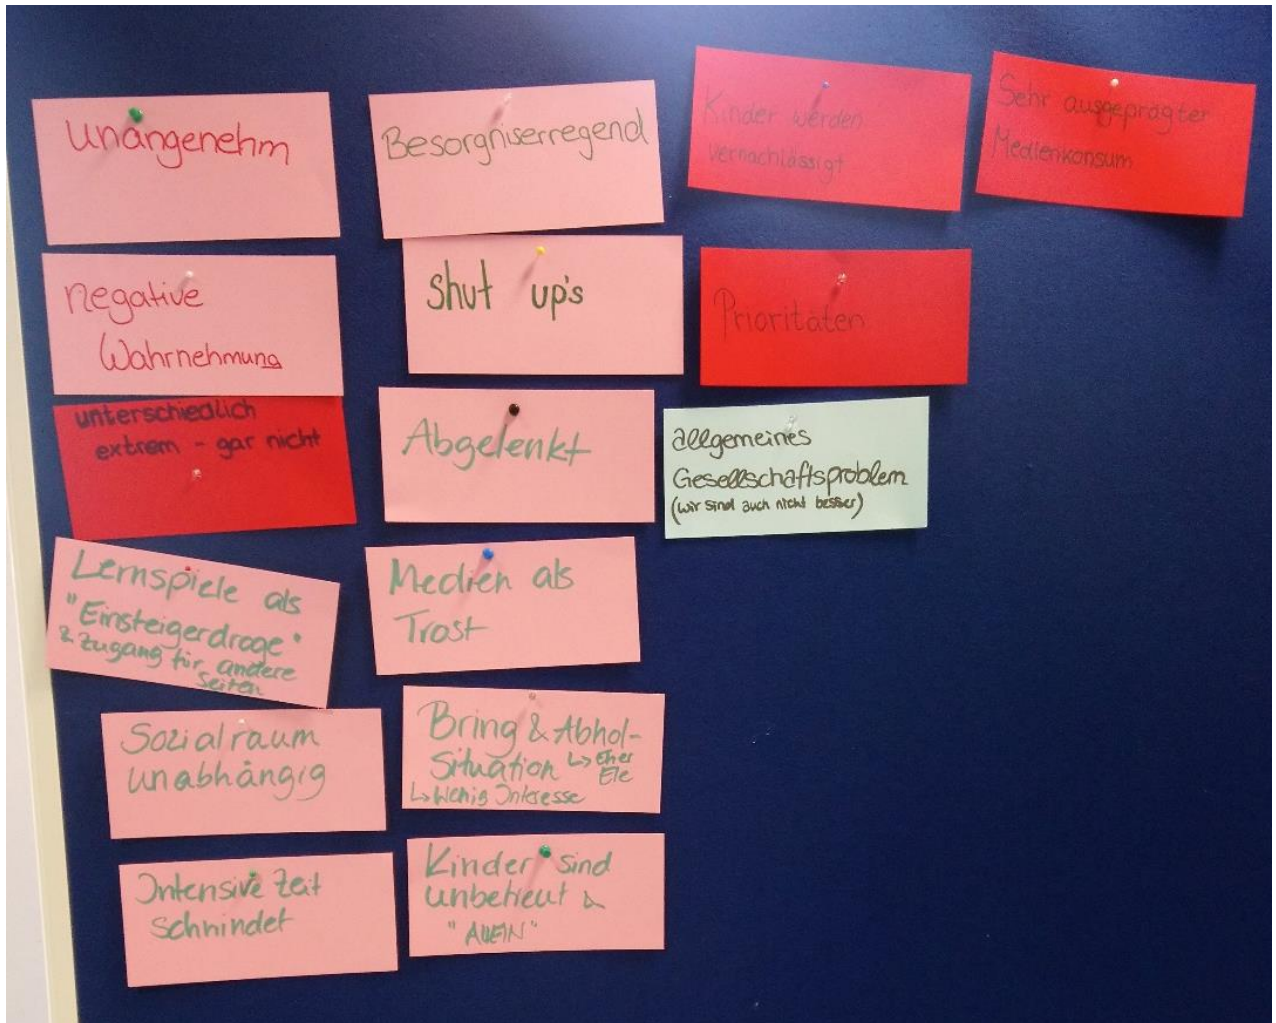 unangenehm
negative
Wahrnehmung
unterschiedlich
extrem - gar nicht
Lernspiele als
"Einsteigerdroge"
& Zugang für andere
Seiten
Sozialraum
unabhängig
Intensive Zeit
schwindet
Besorgniserregend
Shut up's
Abgelenkt
Medien als
Trost
Bring & Abhol-
Situation ↳ Eher
Ele
↳ Wenig Interesse
Kinder sind
unbetreut &
"ALLEIN"
Kinder werden
vernachlässigt
Prioritäten
allgemeines
Gesellschaftsproblem
(wir sind auch nicht besser)
Sehr ausgeprägter
Medienkonsum